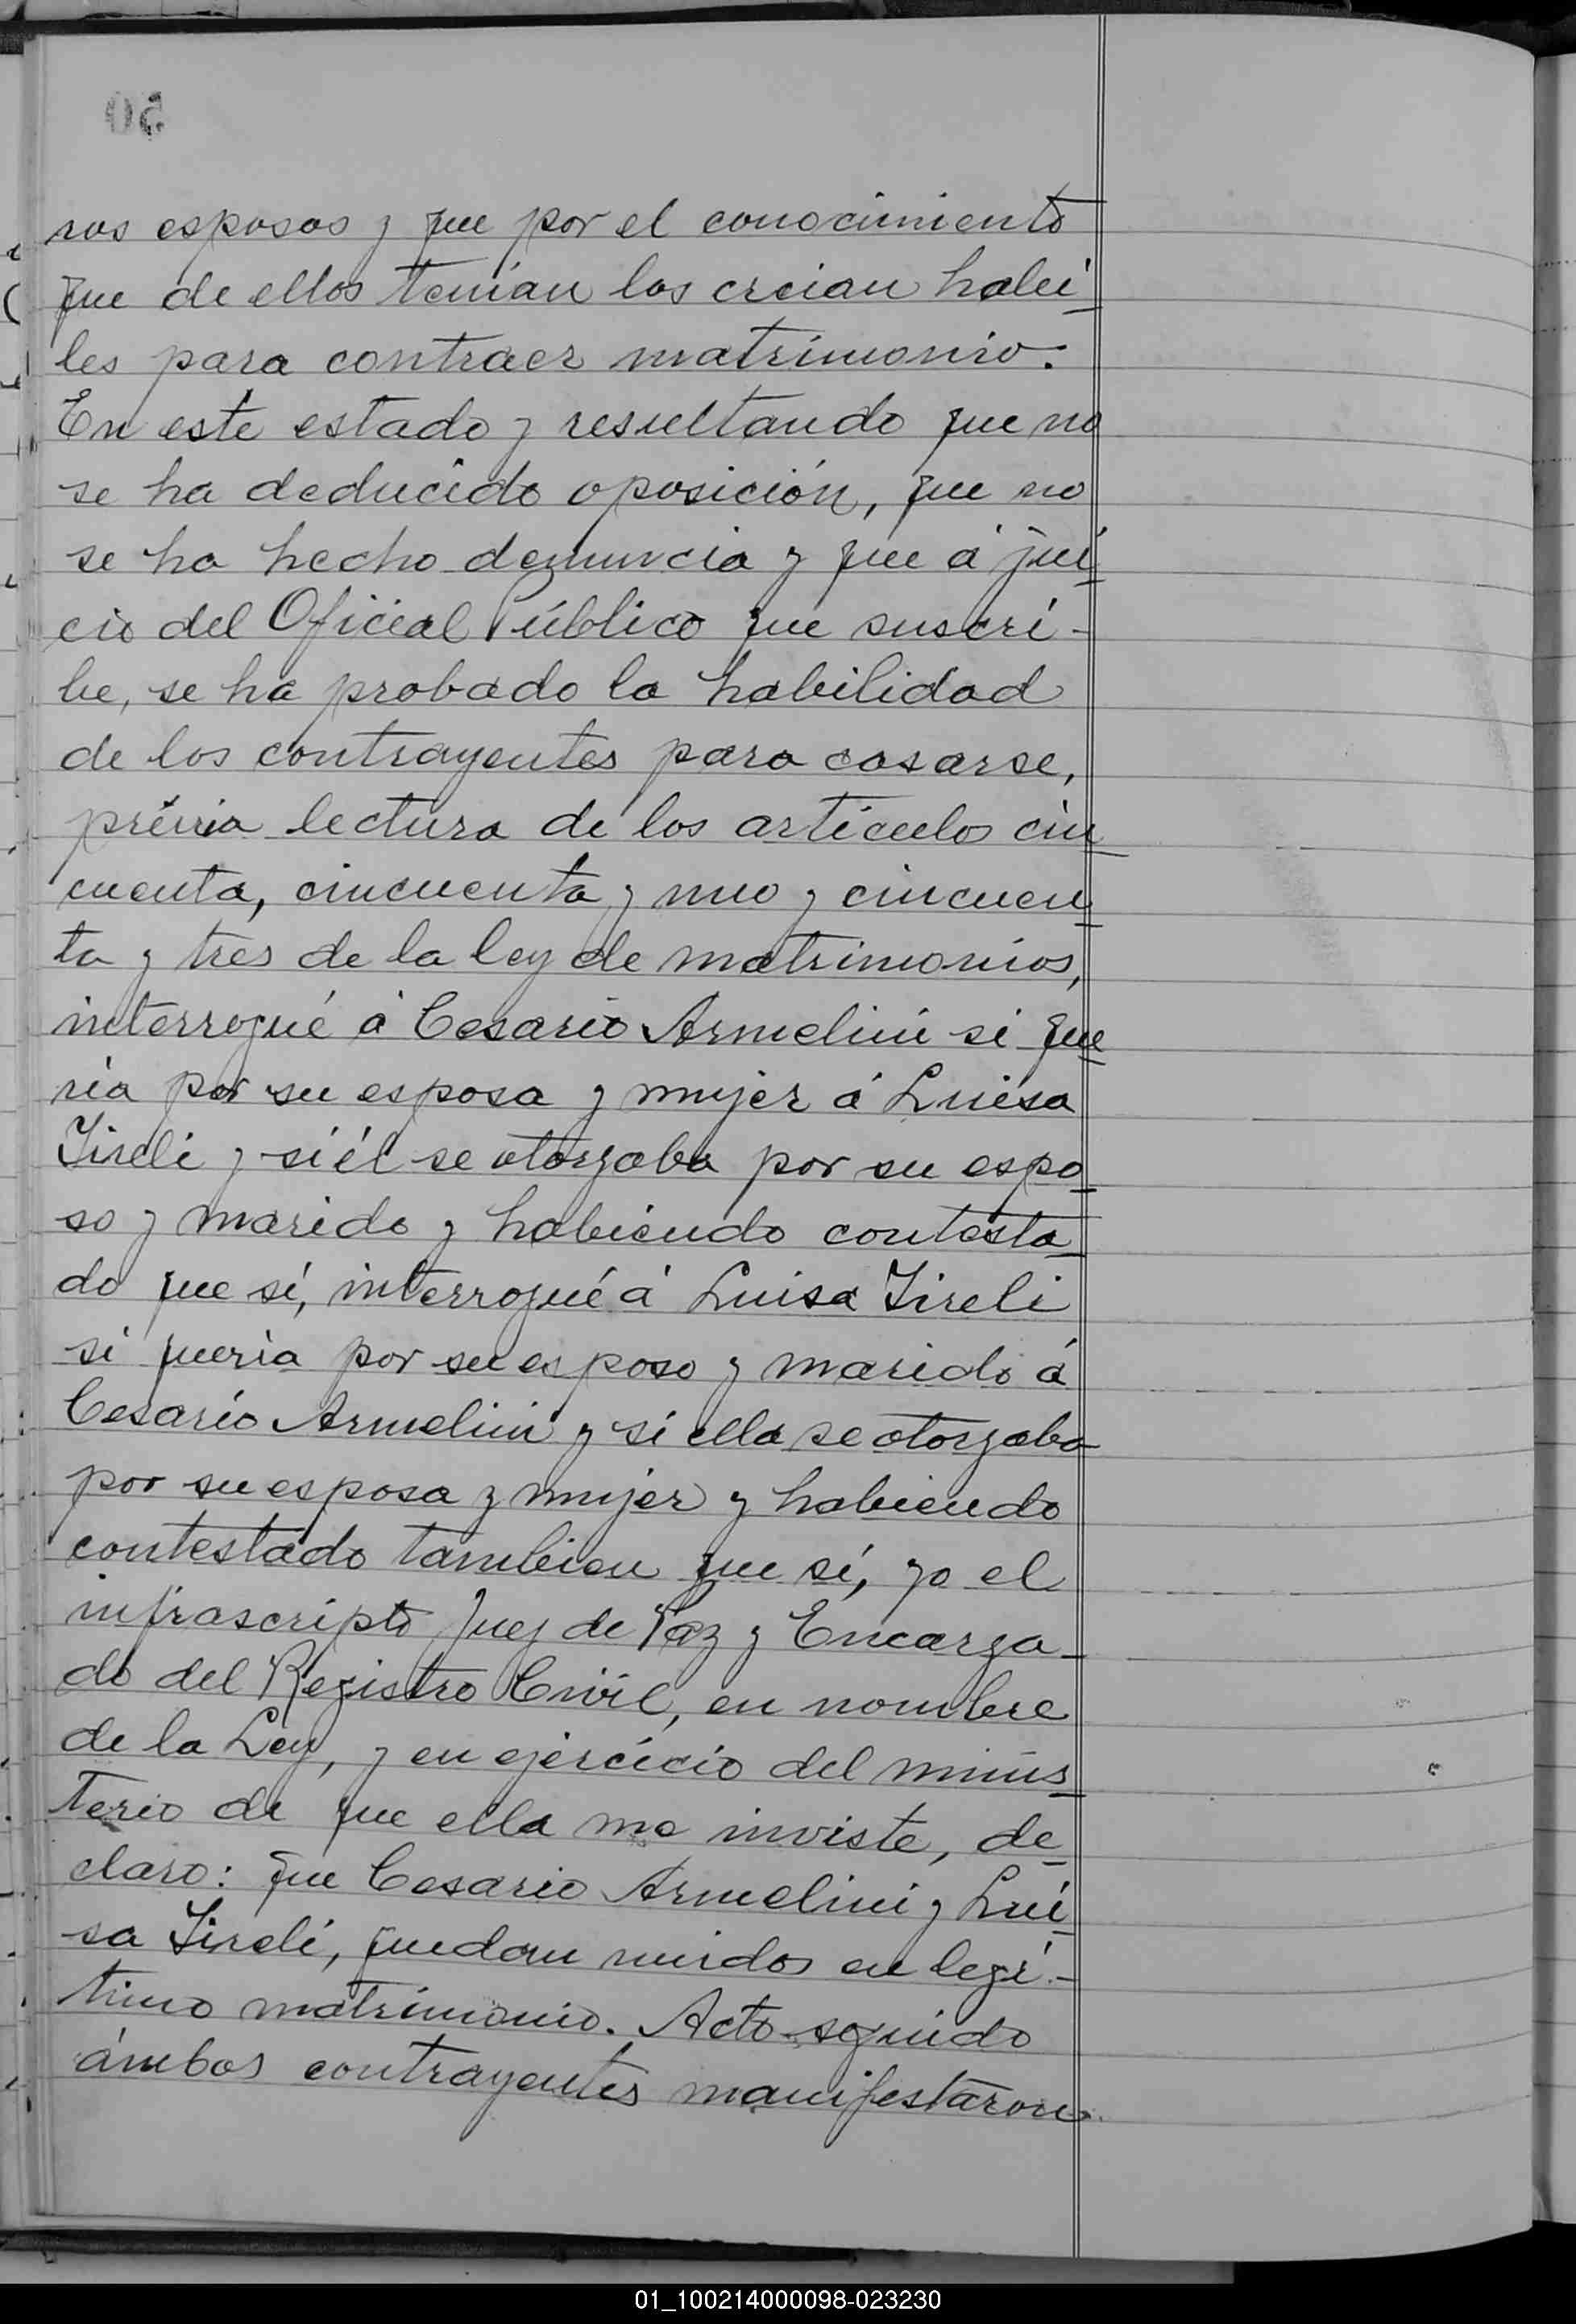 50
ros esposos y que por el conocimiento
que de ellos tenían los creian habi-
les para contraer matrimonio.
En este estado y resultando que no
se ha deducido oposición, que no
se ha hecho denuncia y que á jui-
cio del Oficial Público que suscri-
be, se ha probado la habilidad
de los contrayentes para casarse,
prévia lectura de los artículos cin-
cuenta, cincuenta y uno y cincuen-
ta y tres de la ley de matrimonios,
interrogué á Cesario Armelini si que-
ria por su esposa y mujer á Luisa
Tireli y si él se otorgaba por su espo-
so y marido y habiendo contesta-
do que sí, interrogué á Luisa Tireli
si queria por su esposo y marido á
Cesario Armelini y si ella se otorgaba
por su esposa y mujer y habiendo
contestado tambien que sí, yo el
infrascripto Juez de Paz y Encarga-
do del Registro Civil, en nombre
de la Ley, y en ejercicio del minis-
terio de que ella me inviste, de-
claro: que Cesario Armelini y Lui-
sa Tireli, quedan unidos en legí-
timo matrimonio. Acto seguido
ámbos contrayentes manifestaron
01_100214000098-023230